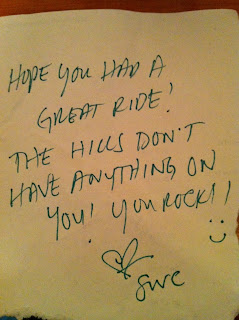 HOPE YOU HAD A
GREAT RIDE!
THE HILLS DON'T
HAVE ANYTHING ON
YOU! YOU ROCK!!